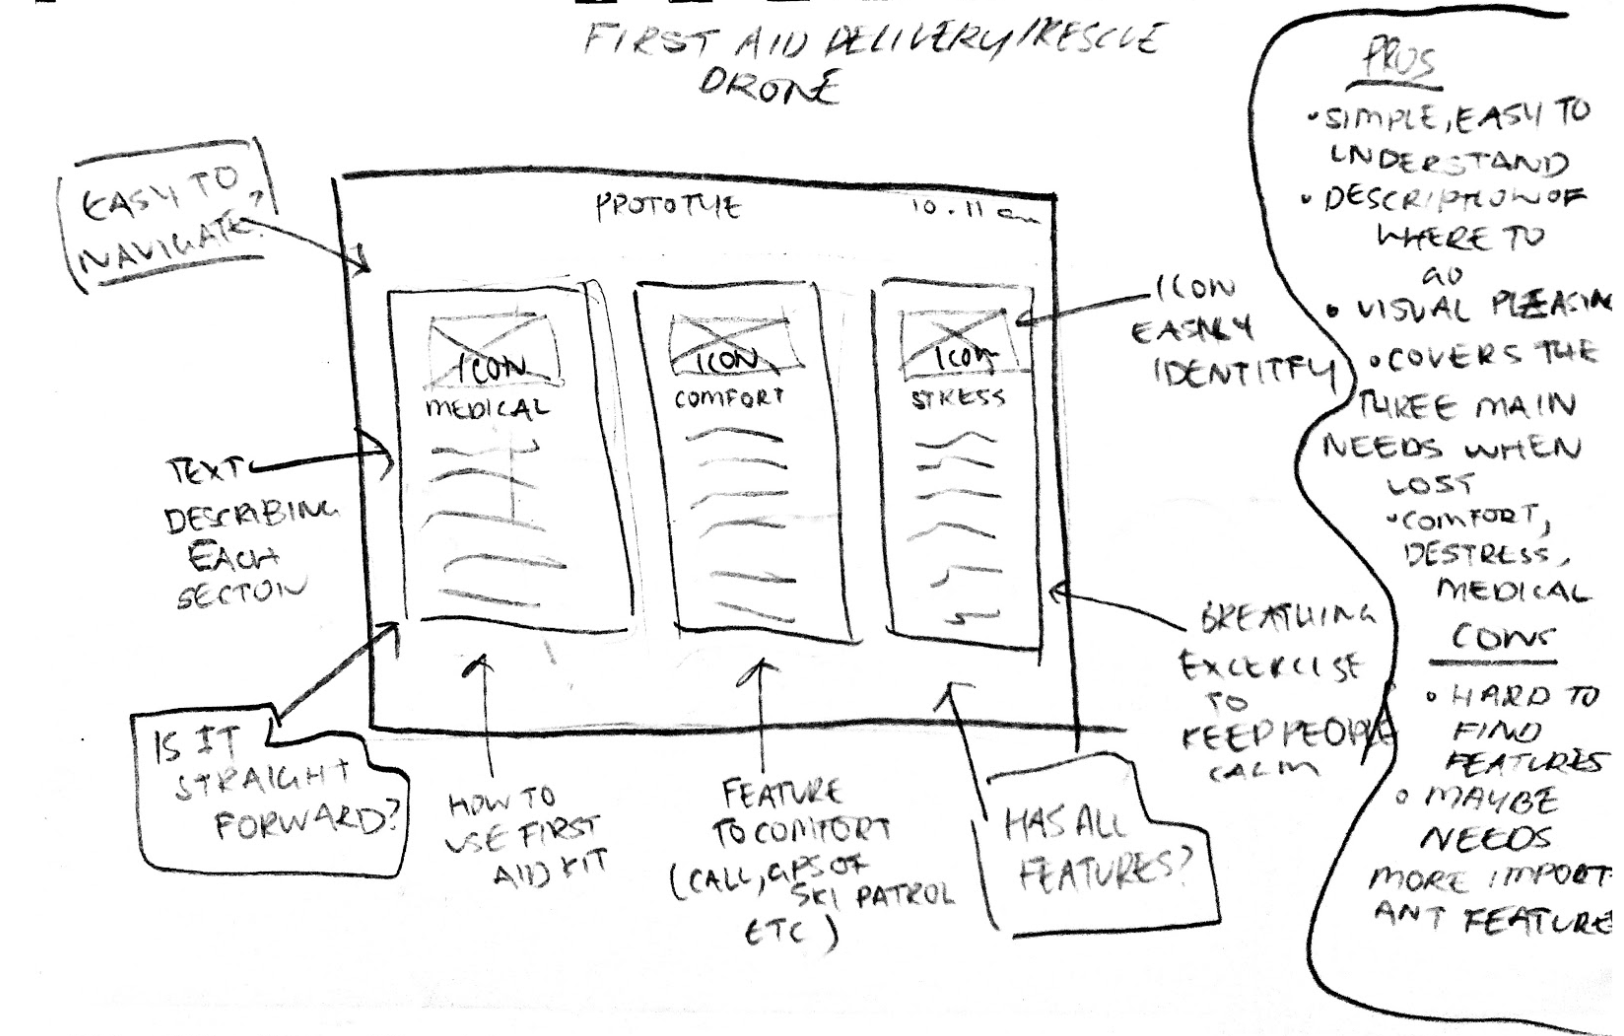 FIRST AID DELIVERY/RESCUE
DRONE
EASY TO
NAVIGATE?
PROTOTYE
10.11 am
ICON
MEDICAL
ICON
COMFORT
ICON
STRESS
ICON
EASILY
IDENTITFY
TEXT
DESCRIBING
EACH
SECTON
BREATHING
EXCERCISE
TO
KEEP PEOPLE
CALM
IS IT
STRAIGHT
FORWARD?
HOW TO
USE FIRST
AID KIT
FEATURE
TO COMFORT
(CALL, GPS OF
SKI PATROL
ETC)
HAS ALL
FEATURES?
PROS
•SIMPLE, EASY TO
UNDERSTAND
• DESCRIPTION OF
WHERE TO
GO
• VISUAL PLEASIN
• COVERS THE
THREE MAIN
NEEDS WHEN
LOST
•COMFORT,
DESTRESS,
MEDICAL
CONS
• HARD TO
FIND
FEATURES
• MAYBE
NEEDS
MORE IMPORT
ANT FEATURE